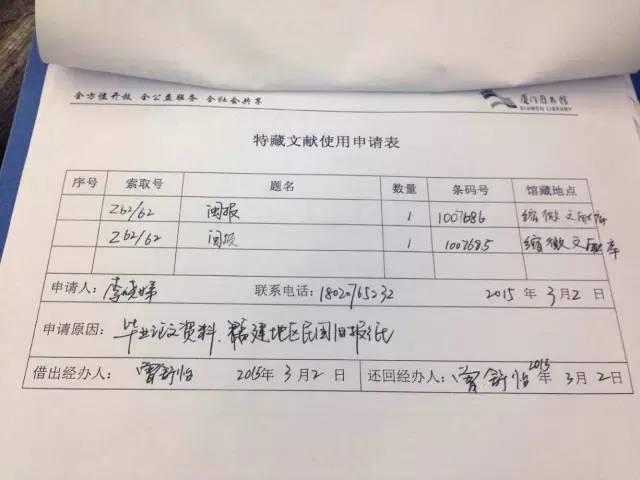 全方位开放 全公益服务 全社会共享
厦门图书馆
XIAMEN LIBRARY
特藏文献使用申请表
序号 索取号 题名 数量 条码号 馆藏地点
Z62/62 闽报 1 1007686 缩微文献库
Z62/62 闽报 1 1007685 缩微文献库
申请人：李晓娣 联系电话：18020765232 2015 年 3月2日
申请原因：毕业论文资料、福建地区民国旧报纸
借出经办人：曾舒怡 2015年 3月2日 还回经办人：曾舒怡 2015年 3月2日